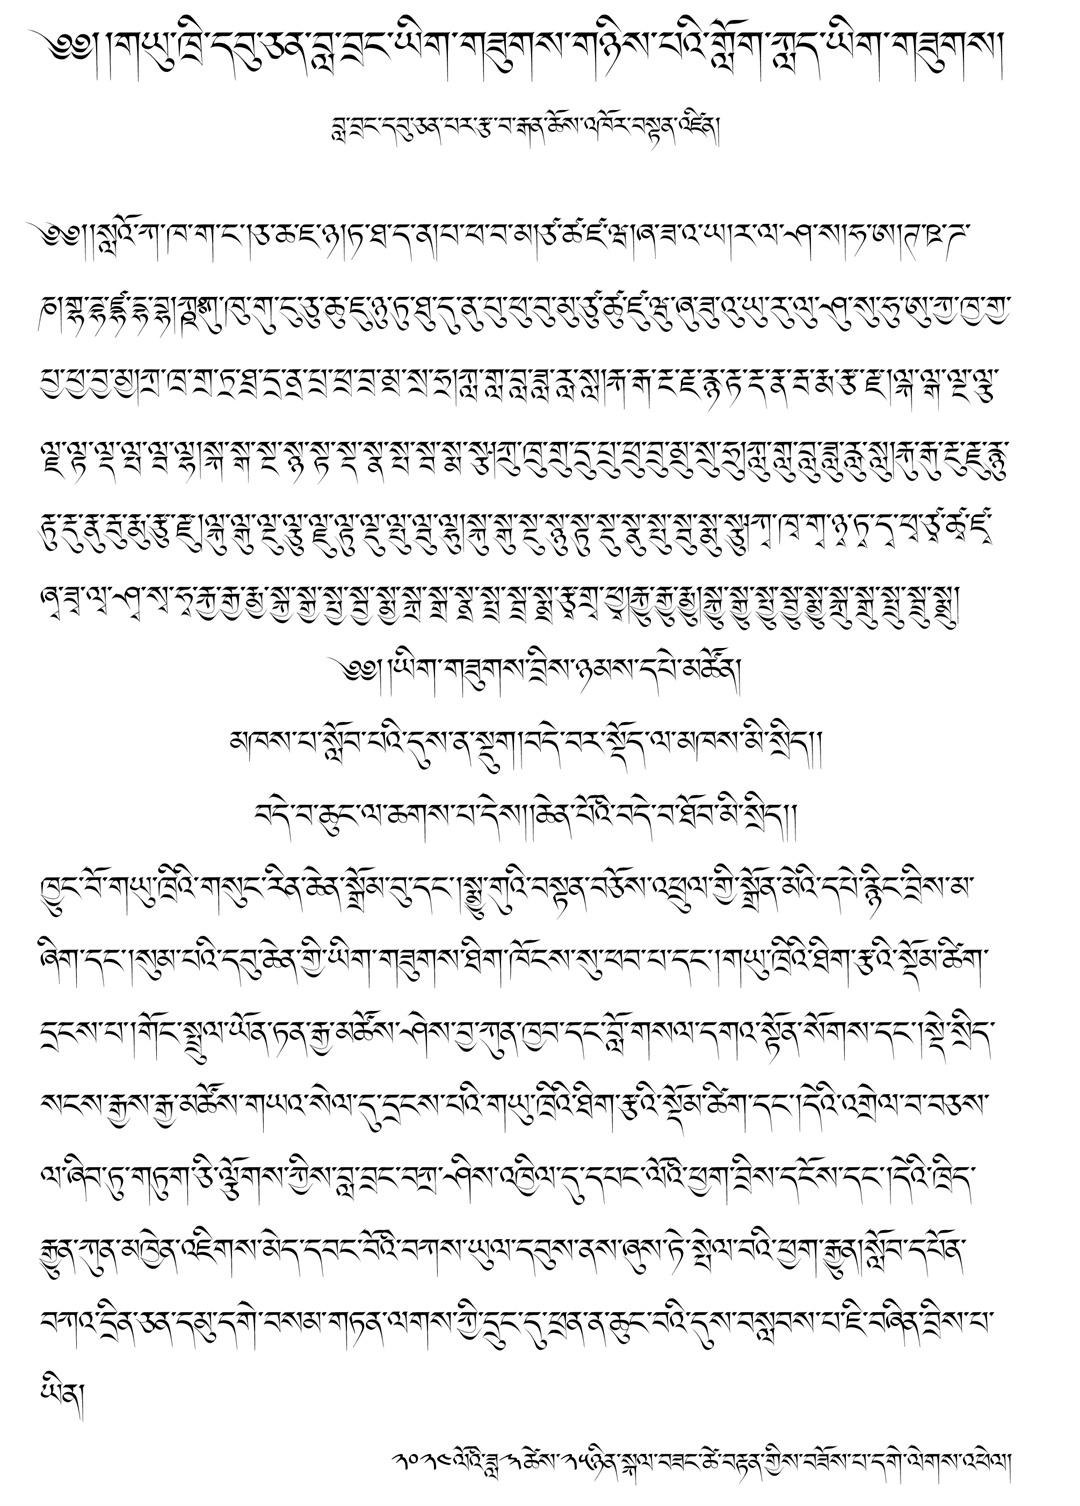 ༄༅། །གཡུ་ཁྲི་དབུ་ཅན་བླ་བྲང་ཡིག་གཟུགས་གཉིས་པའི་གློག་ཀླད་ཡིག་གཟུགས།
བླ་བྲང་དབུ་ཅན་པར་རྩ་བ་རྒན་ཆོས་འཁོར་བསྟན་འཛིན།
༄༅།།སླའོ་ཀ་ཁ་ག་ང་།ཅ་ཆ་ཇ་ཉ།ཏ་ཐ་ད་ན།པ་ཕ་བ་མ།ཙ་ཚ་ཛ་ཝ།ཞ་ཟ་འ་ཡ།ར་ལ་ཤ་ས།ཧ་ཨ།ཊ་ཋ་ཌ་
ཁྱ་གྱ་
པྱ་ཕྱ་བྱ་མྱ།ཀྲ་ཁྲ་གྲ་ཏྲ་ཐྲ་དྲ་ནྲ་པྲ་ཕྲ་བྲ་མྲ་སྲ་ཧྲ།ཀླ་གླ་བླ་ཟླ་རླ་སླ།རྐ་རྒ་རྔ་རྗ་རྙ་རྟ་རྡ་རྣ་རྦ་རྨ་རྩ་རྫ།ལྐ་ལྒ་ལྔ་ལྕ་
ལྗ་ལྟ་ལྡ་ལྤ་ལྦ་ལྷ།སྐ་སྒ་སྔ་སྙ་སྟ་སྡ་སྣ་སྤ་སྦ་སྨ་སྩ།ཀྲུ་ཁྲུ་གྲུ་དྲུ་པྲུ་ཕྲུ་བྲུ་མྲུ་སྲུ་ཧྲུ།ཀླུ་གླུ་བླུ་ཟླུ་རླུ་སླུ།རྐུ་རྒུ་རྔུ་རྗུ་རྙུ་
རྟུ་རྡུ་རྣུ་རྦུ་རྨུ་རྩུ་རྫུ།ལྐུ་ལྒུ་ལྔུ་ལྕུ་ལྗུ་ལྟུ་ལྡུ་ལྤུ་ལྦུ་ལྷུ།སྐུ་སྒུ་སྔུ་སྙུ་སྟུ་སྡུ་སྣུ་སྤུ་སྦུ་སྨུ་སྩུ།ཀྭ་ཁྭ་གྭ་ཉྭ་ཏྭ་དྭ་ཕྭ་ཙྭ་ཚྭ་ཛྭ་
ཞྭ་ཟྭ་ལྭ་ཤྭ་སྭ་ཧྭ་རྐྱ་རྒྱ་རྨྱ་སྐྱ་སྒྱ་སྤྱ་སྦྱ་སྨྱ་སྐྲ་སྒྲ་སྣྲ་སྤྲ་སྦྲ་སྨྲ་རྩྭ་གྲྭ་ཕྱྭ།རྐྱུ་རྒྱུ་རྨྱུ།སྐྱུ་སྒྱུ་སྤྱུ་སྦྱུ་སྨྱུ་སྐྲུ་སྒྲུ་སྤྲུ་སྦྲུ་སྨྲུ།
༄༅། །ཡིག་གཟུགས་བྲིས་ཉམས་དཔེ་མཚོན།
མཁས་པ་སློབ་པའི་དུས་ན་སྡུག།བདེ་བར་སྡོད་ལ་མཁས་མི་སྲིད།།
བདེ་བ་ཆུང་ལ་ཆགས་པ་དེས།།ཆེན་པོའི་བདེ་བ་ཐོབ་མི་སྲིད།།
ཁྱུང་པོ་གཡུ་ཁྲིའི་གསུང་རིན་ཆེན་སྒྲོམ་བུ་དང་།སྨྱུ་གུའི་བསྟན་བཅོས་འཕྲུལ་གྱི་སྒྲོན་མེའི་དཔེ་རྙིང་བྲིས་མ་
ཞིག་དང་།སུམ་པའི་དབུ་ཆེན་གྱི་ཡིག་གཟུགས་ཐིག་ཁོངས་སུ་ཕབ་པ་དང་།གཡུ་ཁྲིའི་ཐིག་རྩའི་སྡོམ་ཚིག་
དྲངས་པ།།གོང་སྤྲུལ་ཡོན་ཏན་རྒྱ་མཚོས་ཤེས་བྱ་ཀུན་ཁྱབ་དང་བློ་གསལ་དགའ་སྟོན་སོགས་དང་།སྡེ་སྲིད་
སངས་རྒྱས་རྒྱ་མཚོས་གཡའ་སེལ་དུ་དྲངས་པའི་གཡུ་ཁྲིའི་ཐིག་རྩའི་སྡོམ་ཚིག་དང་།དེའི་འགྲེལ་བ་བཅས་
ལ་ཞིབ་ཏུ་གཏུག་ཅི་ལྕོགས་ཀྱིས་བླ་བྲང་བཀྲ་ཤིས་འཁྱིལ་དུ་དཔང་ལོའི་ཕྱག་བྲིས་དངོས་དང་།དེའི་ཁྲིད་
རྒྱུན་ཀུན་མཁྱེན་འཇིགས་མེད་དབང་པོའི་བཀས་ཡུལ་དབུས་ནས་ཞུས་ཏེ་སྤེལ་བའི་ཕྱག་རྒྱུན།སློབ་དཔོན་
བཀའ་དྲིན་ཅན་དམུ་དགེ་བསམ་གཏན་ལགས་ཀྱི་དྲུང་དུ་ཕྲན་ན་ཆུང་བའི་དུས་བསླབས་པ་ཇི་བཞིན་བྲིས་པ་
ཡིན།
༢༠༢༤ལོའི་ཟླ་༢ཚེས་༢༥ཉིན་སྐལ་བཟང་ཚེ་བརྟན་གྱིས་བཟོས་པ་དགེ་ལེགས་འཕེལ།